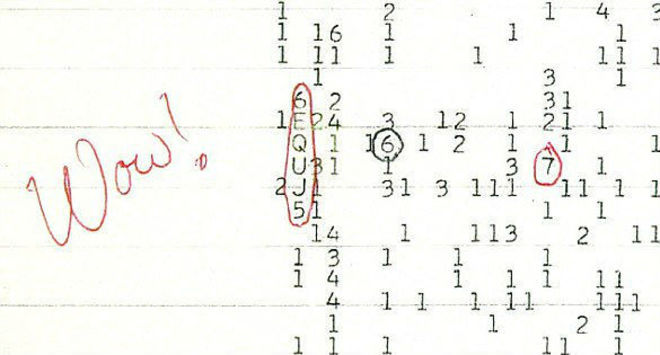 1 2 1 4 3
1 16 1 1 1
1 11 1 1 11 1
1 3 1
6 2 31
1 E 24 3 12 1 21 1
Q 1 1 6 1 2 1 1 1
U 31 1 3 7 1
2 J 1 31 3 111 11 1 1
5 1 1 1
14 1 113 2 11
1 3 1 1 1
1 4 1 1 1 11
4 1 1 1 11 111
1 1 2 1
1 1 1 11 1
Wow!